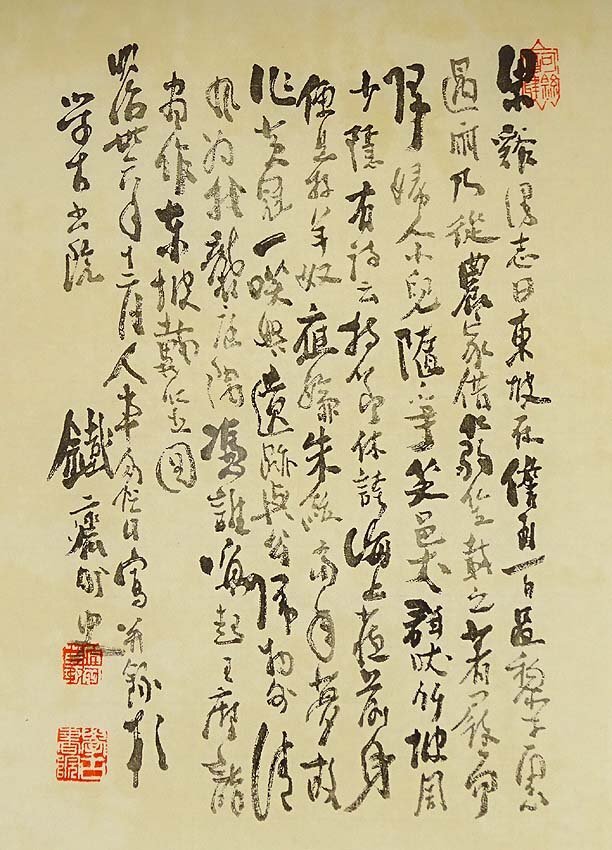 梁谿漫志曰東坡在儋耳一日過黎子雲
遇雨乃從農家借蒻笠戴之着屐而
歸婦人小兒隨争笑邑犬群吠竹坡周
少隱有詩云持節休誇海上蘓前身
便是牧羊奴應嫌朱紱當年夢故
作黃冠一笑娛遺跡與公歸物外清
風為我襲庭隅憑誰喚起王摩詰
畫作東坡戴笠圖
明治卅六年十二月人事匆忙日寫并錄於
學古書院
鐵齋外史
學古書院